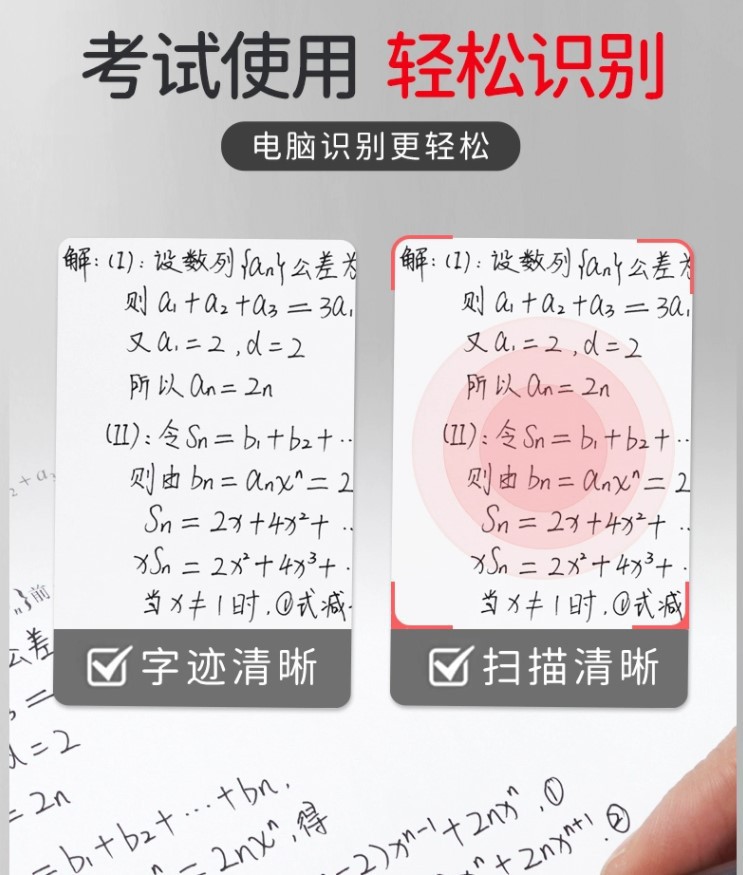 考试使用 轻松识别
电脑识别更轻松
解:(I):设数列{an}公差为
则a₁+a₂+a₃=3a₁
又a₁=2,d=2
所以an=2n
(II):令Sn=b₁+b₂+…
则由bn=anxⁿ=2
Sn=2x+4x²+…
xSn=2x²+4x³+…
当x≠1时,①式减
字迹清晰
解:(I):设数列{an}公差为
则a₁+a₂+a₃=3a₁
又a₁=2,d=2
所以an=2n
(II):令Sn=b₁+b₂+…
则由bn=anxⁿ=2
Sn=2x+4x²+…
xSn=2x²+4x³+…
当x≠1时,①式减
扫描清晰
₂+a₃
n}前
公差
₃=
d=2
=2n
=b₁+b₂+…+bn,
ⁿ=2nxⁿ,得
-2)xⁿ⁻¹+2nxⁿ,①
xⁿ+2nxⁿ⁺¹.②